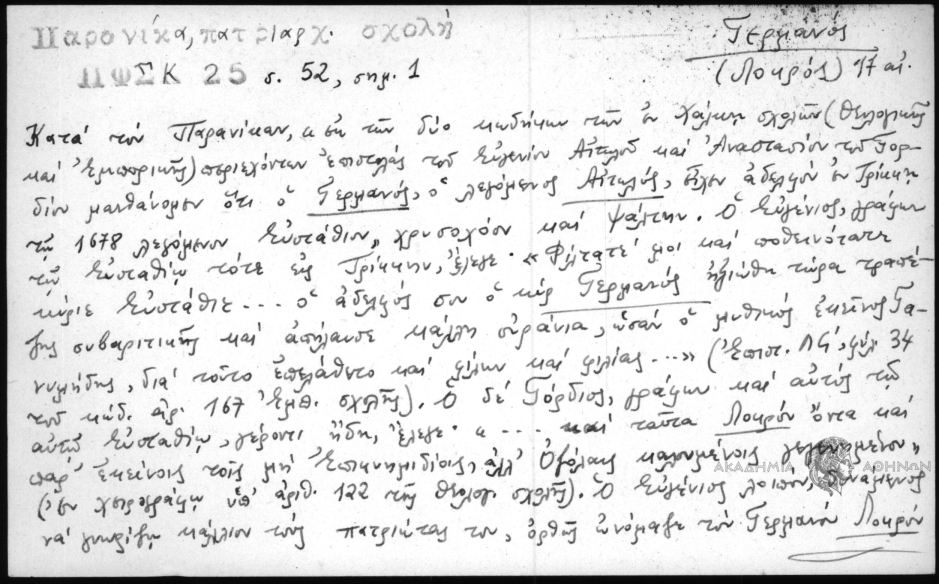 Παρανίκα, πατριαρχ. σχολή
ΠΦΣΚ 25 σ. 52, σημ. 1
Γερμανός
(Λοκρός) 17 αἰ.
Κατά τόν Παρανίκαν, « ἐκ τῶν δύο κωδήκων τῶν ἐν Χάλκῃ σχολῶν (Θεολογικῆς
καί Ἐμπορικῆς) περιεχόντων ἐπιστολάς τοῦ Εὐγενίου Αἰτωλοῦ καί Ἀναστασίου τοῦ Γορ-
δίου μανθάνομεν ὅτι ὁ Γερμανός, ὁ λεγόμενος Αἰτωλός, εἶχεν ἀδελφόν ἐν Τρίκκῃ
τῷ 1678 λεγόμενον Εὐστάθιον, χρυσοχόον καί ψάλτην. Ὁ Εὐγένιος, γράφων
τῷ Εὐσταθίῳ τότε εἰς Τρίκκην, ἔλεγε· « Φίλτατέ μοι καί ποθεινότατε
κύριε Εὐστάθιε ... ὁ ἀδελφός σου ὁ κύρ Γερμανός ἠξιώθη τώρα τραπέ-
ζης συβαριτικῆς καί ἀπήλαυσε κάλλη οὐράνια, ὡσάν ὁ μυθικός ἐκεῖνος Γα-
νυμήδης, διά τοῦτο ἐπελάθετο καί φίλων καί φιλίας ...» (Ἐπιστ. ΛϚ', φύλ. 34
τοῦ κώδ. ἀρ. 167 Ἐμπ. σχολῆς). Ὁ δέ Γόρδιος, γράφων καί αὐτός τῷ
αὐτῷ Εὐσταθίῳ, γέροντι ἤδη, ἔλεγε « ... καί ταῦτα Λοκρόν ὄντα καί
παρ' ἐκείνοις τοῖς μή Ἐπικνημιδίοις, ἀλλ' Ὀζόλαις καλουμένοις γεγεννημένον»
(ἐν χειρογράφῳ ὑπ' ἀριθ. 122 τῆς Θεολογ. σχολῆς). Ὁ Εὐγένιος λοιπόν, δυνάμενος
νά γνωρίζῃ κάλλιον τούς πατριώτας του, ὀρθῶς ὠνόμαζε τόν Γερμανόν Λοκρόν
ΑΚΑΔΗΜΙΑ ΑΘΗΝΩΝ